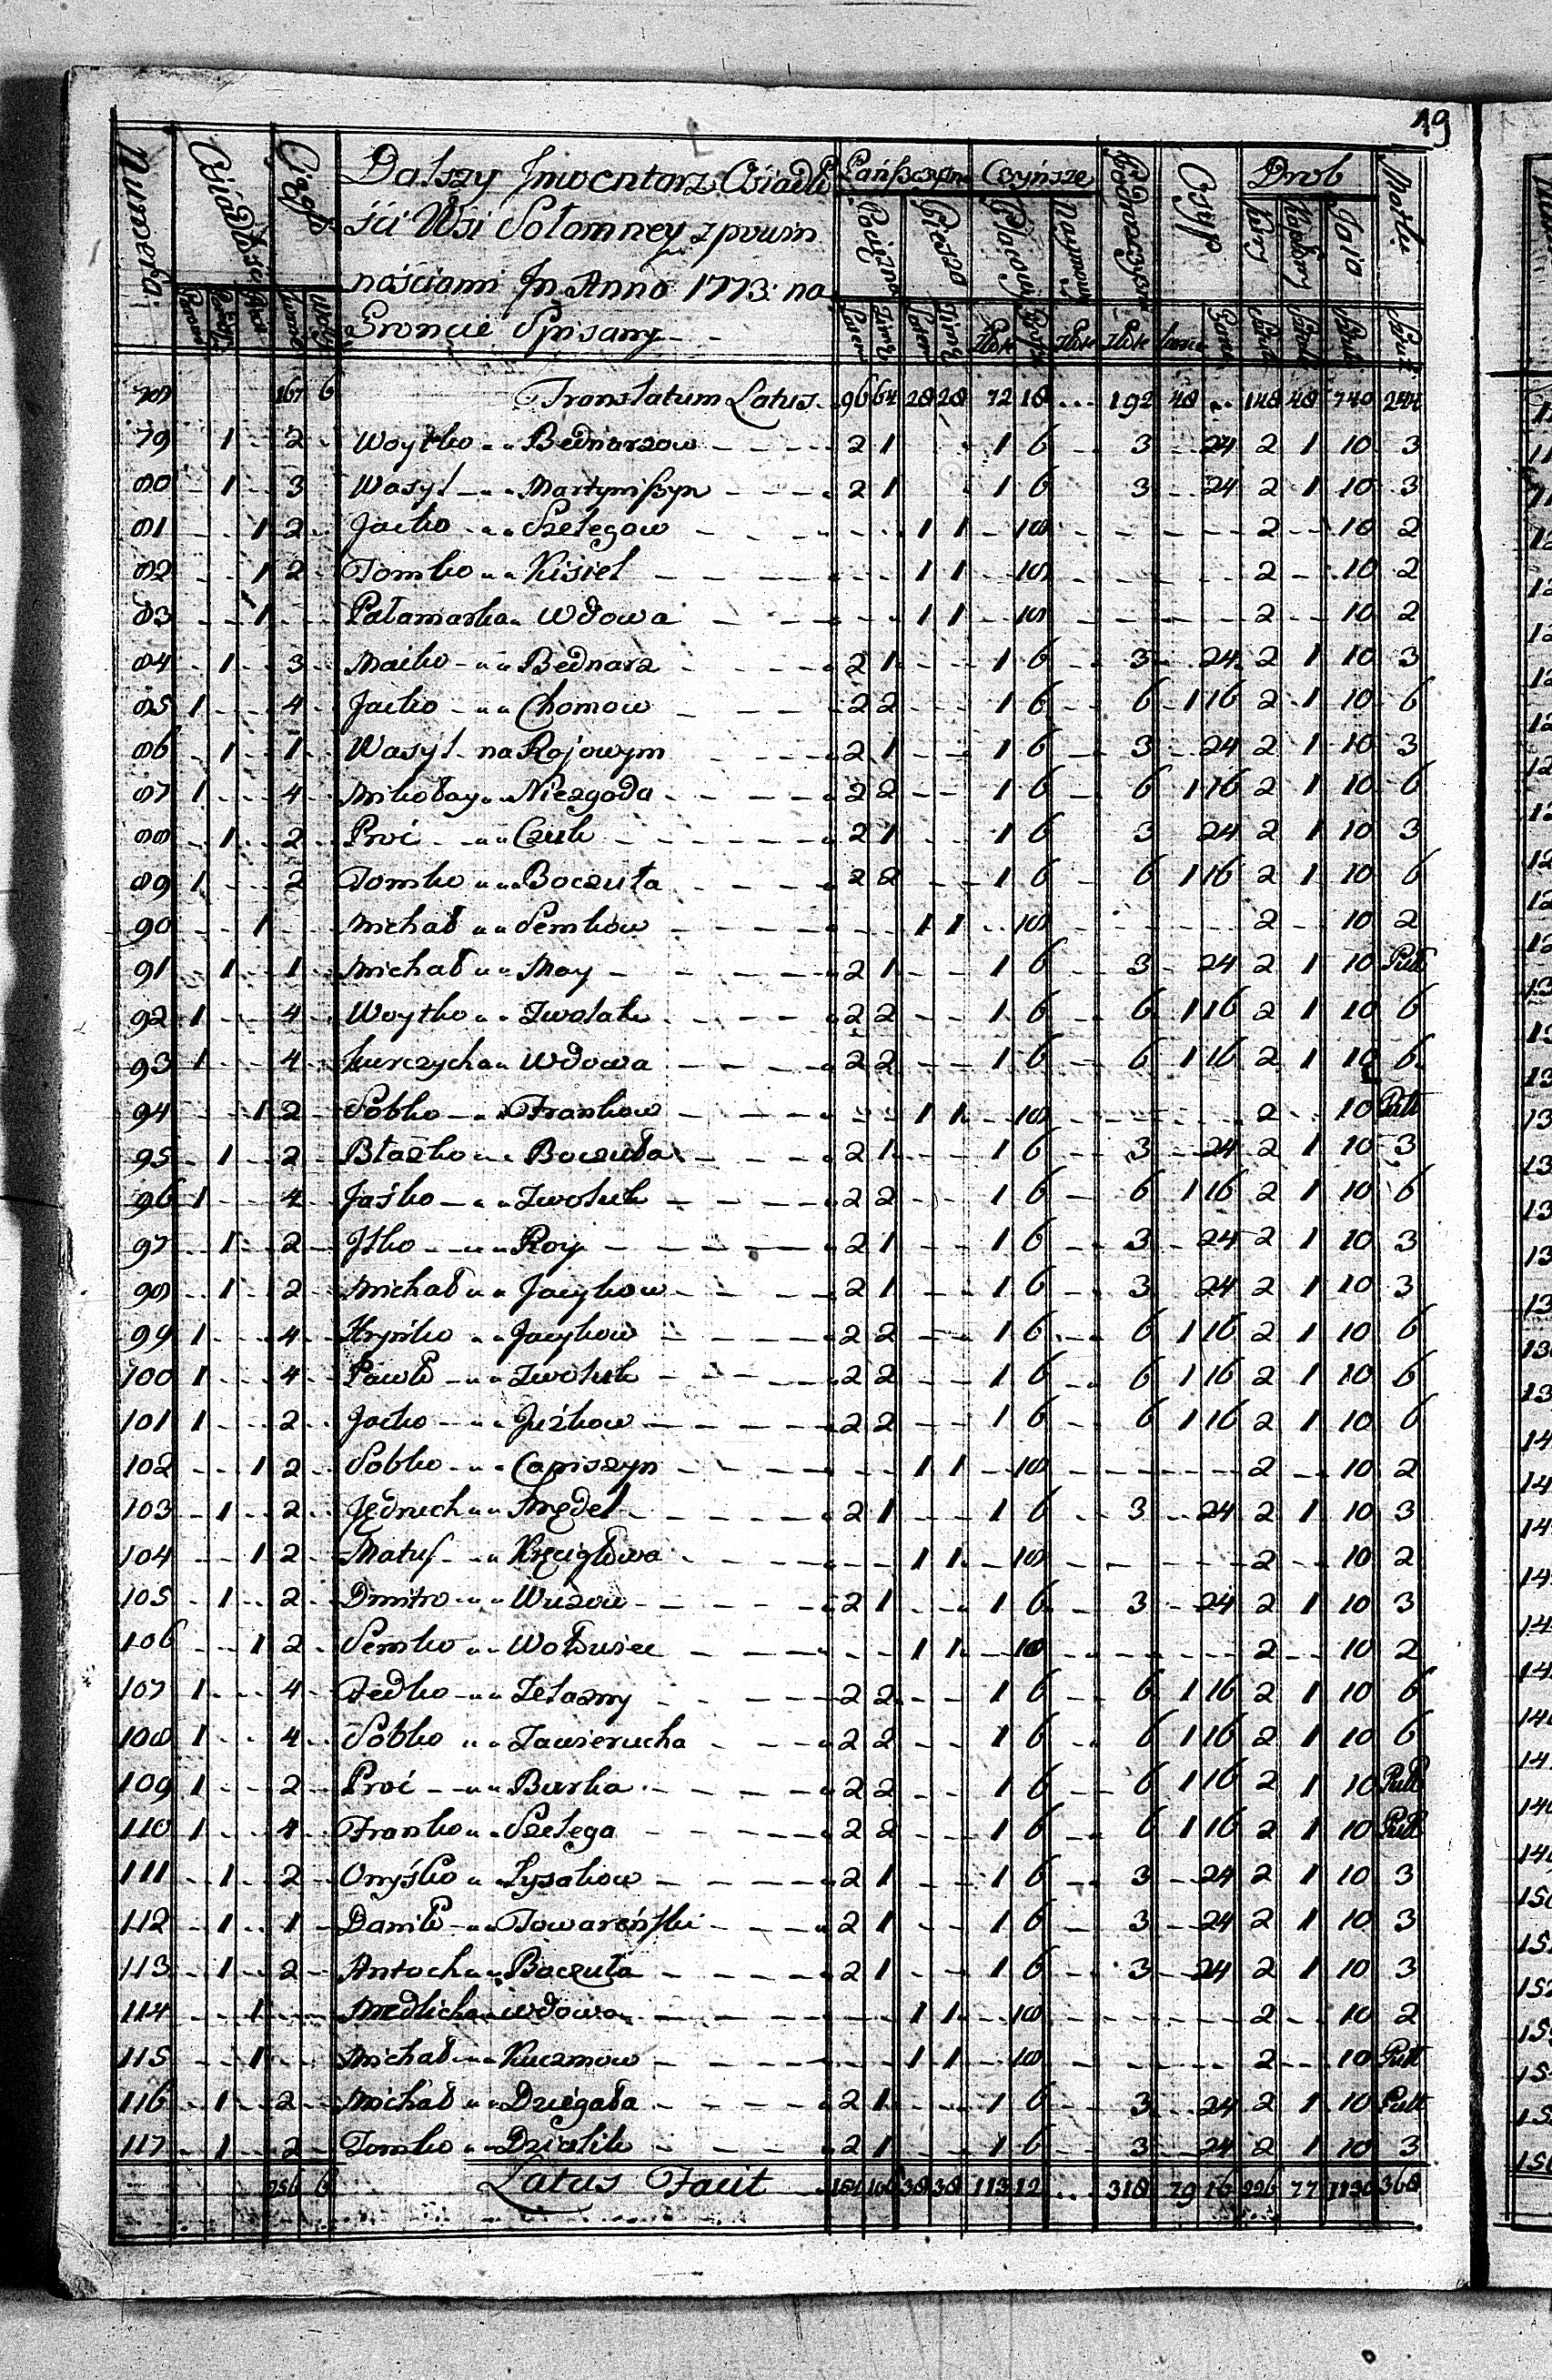 19
Numera
Osiadłość
Ciągłe
Dalszy Inwentarz Osiadło
ści Wsi Sołomney z powin
nościami In Anno 1773: na
Groncie Spisany
Pańszczyzna
Ciągła
Piesza
Czynsze
Osyp
Drob
Kury
Kapłony
Jaja
Motki
167 6 Translatum Latus 96 64 28 28 72 18 192 48 148 48 740 244
79 1 2 Woytko Bednarzow 2 1 1 6 3 24 2 1 10 3
80 1 3 Wasyl Martyniszyn 2 1 1 6 3 24 2 1 10 3
81 1 2 Jacko Szelegow 1 1 18 2 10 2
82 1 2 Tomko Kisiel 1 1 18 2 10 2
83 1 Pałamarka Wdowa 1 1 18 2 10 2
84 1 3 Maćko Bednarz 2 1 1 6 3 24 2 1 10 3
85 1 4 Jacko Chomow 2 2 1 6 6 1 16 2 1 10 6
86 1 1 Wasyl na Rojowym 2 1 1 6 3 24 2 1 10 3
87 1 4 Mikołay Niezgoda 2 2 1 6 6 1 16 2 1 10 6
88 1 2 Proć Czuk 2 1 1 6 3 24 2 1 10 3
89 1 2 Tomko Boczuła 2 2 1 6 6 1 16 2 1 10 6
90 1 Michał Semkow 1 1 18 2 10 2
91 1 1 Michał May 2 1 1 6 3 24 2 1 10 Putt
92 1 4 Woytko Zwolak 2 2 1 6 6 1 16 2 1 10 6
93 1 4 Kurczycha Wdowa 2 2 1 6 6 1 16 2 1 10 6
94 1 2 Sobko Frankow 1 1 18 2 10 Putt
95 1 2 Błażko Boczuła 2 1 1 6 3 24 2 1 10 3
96 1 4 Jaśko Zwoluk 2 2 1 6 6 1 16 2 1 10 6
97 1 2 Ilko Roy 2 1 1 6 3 24 2 1 10 3
98 1 2 Michał Jacykow 2 1 1 6 3 24 2 1 10 3
99 1 4 Hryńko Jacykow 2 2 1 6 6 1 16 2 1 10 6
100 1 4 Pawło Zwoluk 2 2 1 6 6 1 16 2 1 10 6
101 1 2 Jacko Juźkow 2 2 1 6 6 1 16 2 1 10 6
102 1 2 Sobko Capiszyn 1 1 18 2 10 2
103 1 2 Jędruch Mędel 2 1 1 6 3 24 2 1 10 3
104 1 2 Matus Kręcigłowa 1 1 18 2 10 2
105 1 2 Dmitro Wuzow 2 1 1 6 3 24 2 1 10 3
106 1 2 Semko 1 1 18 2 10 2
107 1 4 Fedko Żelazny 2 2 1 6 6 1 16 2 1 10 6
108 1 4 Sobko Zawierucha 2 2 1 6 6 1 16 2 1 10 6
109 1 2 Proć Burka 2 2 1 6 6 1 16 2 1 10 Putt
110 1 4 Franko Szelega 2 2 1 6 6 1 16 2 1 10 Putt
111 1 2 Onyśko Łysakow 2 1 1 6 3 24 2 1 10 3
112 1 1 Daniło Towarański 2 1 1 6 3 24 2 1 10 3
113 1 2 Antoch Boczuła 2 1 1 6 3 24 2 1 10 3
114 1 Medlicha Wdowa 1 1 18 2 10 2
115 1 Michał Kuczmow 1 1 18 2 10 Putt
116 1 2 Michał Dziegała 2 1 1 6 3 24 2 1 10 Putt
117 1 2 Tomko Dzialik 2 1 1 6 3 24 2 1 10 3
256 6 Latus Facit 154 106 38 38 113 12 318 79 16 226 77 1130 368